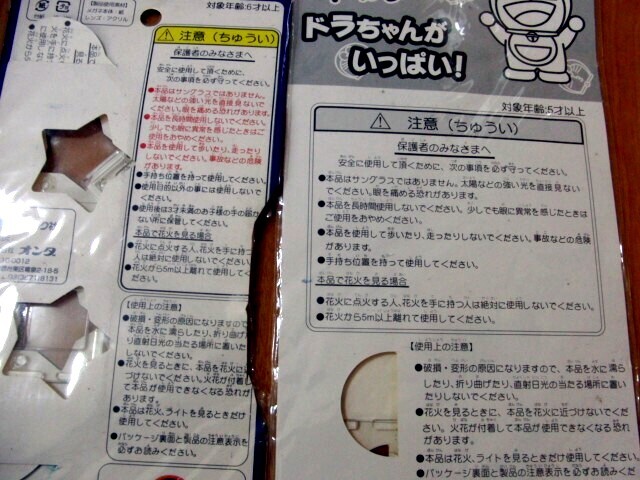 【製品使用素材】
メガネ本体・紙
レンズ・アクリル
対象年齢:6才以上
注意（ちゅうい）
保護者のみなさまへ
安全に使用して頂くために、
次の事項を必ず守ってください。
●本品はサングラスではありません。
太陽などの強い光を直接見ない
でください。眼を痛める恐れがあります。
●本品を長時間使用しないでください。
少しでも眼に異常を感じたときはご
使用をおやめください。
●本品を使用して歩いたり、走ったり
しないでください。事故などの危険
があります。
●手持ち位置を持って使用してください。
●使用目的以外の事には使用しない
でください。
●使用後は3才未満のお子様の手の届か
ない所に保管してください。
本品で花火を見る場合
●花火に点火する人、花火を手に持つ
人は絶対に使用しないでください。
●花火から5m以上離れて使用してください。
【使用上の注意】
●破損・変形の原因になりますので
本品を水に濡らしたり、折り曲げた
り直射日光の当たる場所に置いた
りしないでください。
●花火を見るときに、本品を花火に近
づけないでください。火花が付着し
て本品が使用できなくなる恐れが
あります。
●本品は花火、ライトを見るときだけ
使用してください。
●パッケージ裏面と製品の注意表示を
必ずお読みください。
オンダ
ドラちゃんが
いっぱい!
対象年齢:5才以上
注意（ちゅうい）
保護者のみなさまへ
安全に使用して頂くために、次の事項を必ず守ってください。
●本品はサングラスではありません。太陽などの強い光を直接見ない
でください。眼を痛める恐れがあります。
●本品を長時間使用しないでください。少しでも眼に異常を感じたときは
ご使用をおやめください。
●本品を使用して歩いたり、走ったりしないでください。事故などの危険
があります。
●手持ち位置を持って使用してください。
本品で花火を見る場合
●花火に点火する人、花火を手に持つ人は絶対に使用しないでください。
●花火から5m以上離れて使用してください。
【使用上の注意】
●破損・変形の原因になりますので、本品を水に濡ら
したり、折り曲げたり、直射日光の当たる場所に置いたり
しないでください。
●花火を見るときに、本品を花火に近づけないでくださ
い。火花が付着して本品が使用できなくなる恐れが
あります。
●本品は花火、ライトを見るときだけ使用してください。
●パッケージ裏面と製品の注意表示を必ずお読みくだ